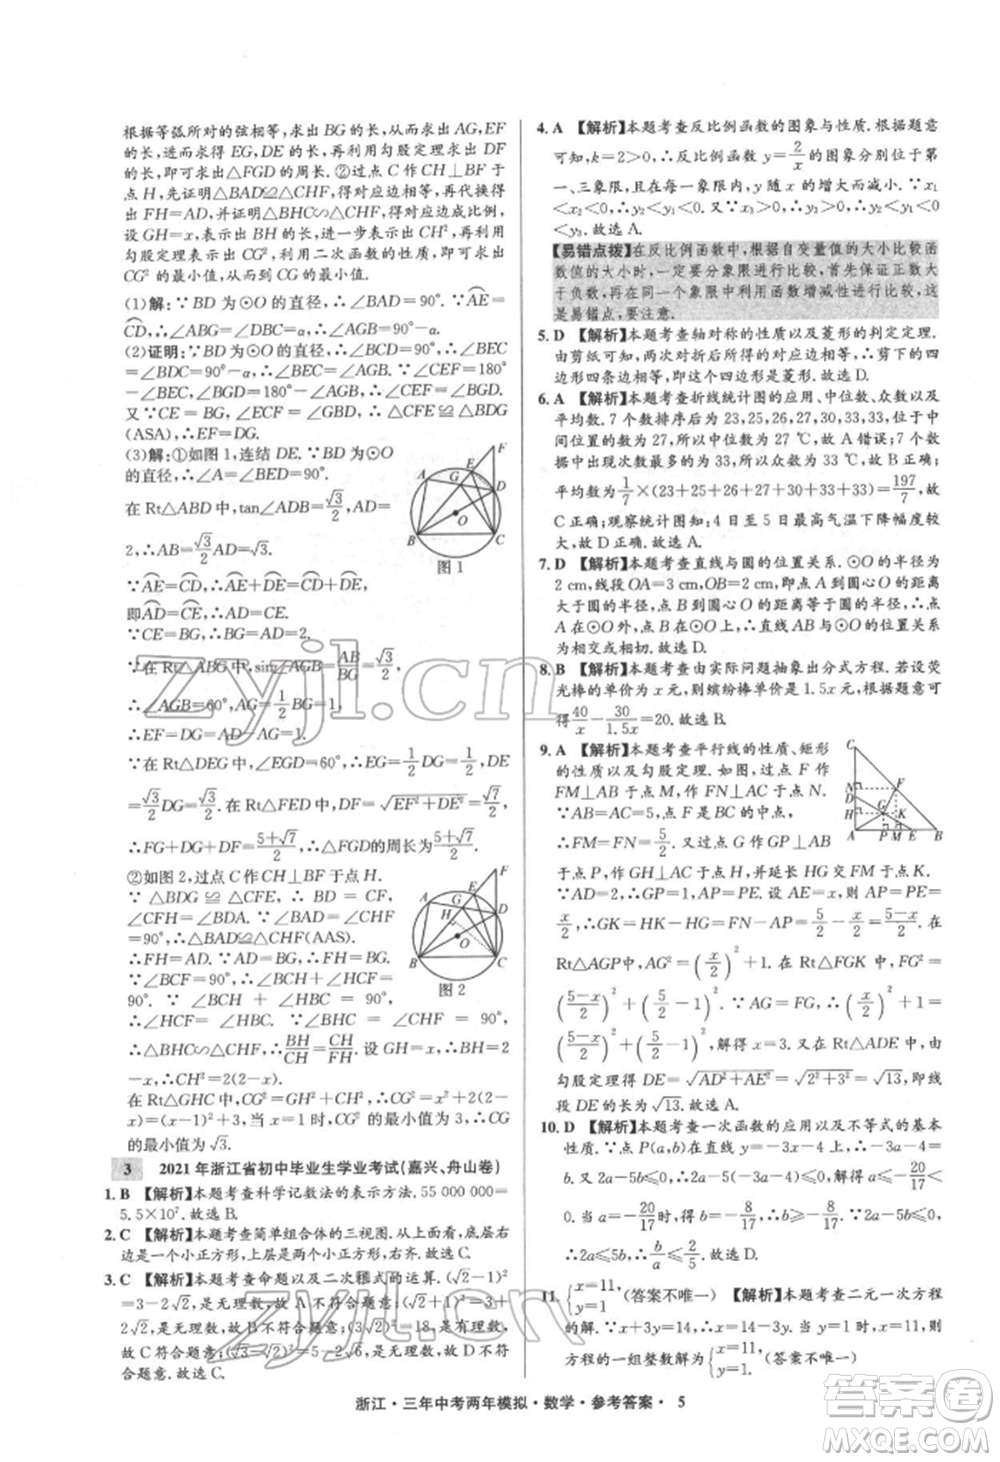 根据等弧所对的弦相等,求出 BG 的长,从而求出 AG,EF
的长,EG,DE 的长,再利用勾股定理求出 DF 的长,进而
求出△FGD 的周长.②过点 C 作 CH⊥BF 于
点 H,先证明△BAD≌△CHF,得对应边相等,再代换得
出 FH=AD,并证明△BHC∽△CHF,得对应边成比例,
设 GH=x,表示出 BH 的长,进一步表示出 CH²,再利用
勾股定理表示出 CG²,利用二次函数的性质求出 CG²
的最小值,从而得到 CG 的最小值.
(1)解:∵BD 为⊙O 的直径,∴∠BAD=90°.∵AE=
CD,∴∠AGB=∠DBC=α,∴∠AGB=90°-α.
(2)证明:∵BD 为⊙O 的直径,∴∠BCD=90°,∴∠BEC
=∠BDC=90°-α,∴∠BEC=∠AGB.∵∠CEF=180°
-∠BEC,∠BGD=180°-∠AGB,∴∠CEF=∠BGD.
又∵CE=BG,∠ECF=∠GBD,∴△CFE≌△BDG
(ASA),∴EF=DG.
(3)解:①如图 1,连结 DE.∵BD 为⊙O
的直径,∴∠A=∠BED=90°.
在 Rt△ABD 中,tan∠ADB=√3/2,AD=
2,∴AB=√3/2 AD=√3.
∵AE=CD,∴AE+DE=CD+DE,
即AD=CE,∴AD=CE.
∵CE=BG,∴BG=AD=2.
∵在 Rt△ABG 中,sin∠AGB=AB/BG=√3/2,
∴∠AGB=60°,AG=1/2 BG=1,
∴EF=DG=AD-AG=1.
∵在 Rt△DEG 中,∠EGD=60°,∴EG=1/2 DG=1/2,DE=
√3/2 DG=√3/2.在 Rt△FED 中,DF=√(EF²+DE²)=√7/2,
∴FG+DG+DF=(5+√7)/2,∴△FGD 的周长为(5+√7)/2.
②如图 2,过点 C 作 CH⊥BF 于点 H.
∵△BDG≌△CFE,∴BD=CF,
∠CFH=∠BDA.∵∠BAD=∠CHF
=90°,∴△BAD≌△CHF(AAS).
∴FH=AD.∵AD=BG,∴FH=BG.
∵∠BCF=90°,∴∠BCH+∠HCF=
90°.∵∠BCH+∠HBC=90°,
∴∠HCF=∠HBC.∵∠BHC=∠CHF=90°,
∴△BHC∽△CHF,∴BH/CH=CH/FH.设 GH=x,∴BH=2
-x,∴CH²=2(2-x).
在 Rt△GHC 中,CG²=GH²+CH²,∴CG²=x²+2(2
-x)=(x-1)²+3,当 x=1 时,CG² 的最小值为 3,∴CG
的最小值为√3.
3 2021 年浙江省初中毕业生学业考试(嘉兴、舟山卷)
1. B 【解析】本题考查科学记数法的表示方法.55 000 000=
5.5×10⁷.故选 B.
2. C 【解析】本题考查简单组合体的三视图.从上面看,底层右
边是一个小正方形,上层是四个小正方形,右齐.故选 C.
3. C 【解析】本题考查命题以及二次根式的运算.(√2-1)²
=3-2√2,是无理数,故 A 不符合题意;(√2+1)²=3+
2√2,是无理数,故 B 不符合题意;(3√2)²=18,是有理数,
故 C 符合题意;(√3-√2)²=5-2√6,是无理数,故 D 不
符合题意.故选 C.
图 1
图 2
4. A 【解析】本题考查反比例函数的图象与性质.根据题意
可知,k=2>0,∴反比例函数 y=2/x 的图象分别位于第
一、三象限,且在每个象限内,y 随 x 的增大而减小.∵x₁
<x₂<0<x₃,∴y₂<y₁<0.又∵x₃>0,∴y₃>0,∴y₂<y₁
<y₃.故选 A.
【易错点拨】在反比例函数中,根据自变量值的大小比较函
数值的大小时,一定要分象限进行比较,首先保证正数大
于负数,再在同一个象限中利用函数增减性进行比较,这
是易错点,要注意.
5. D 【解析】本题考查轴对称的性质以及菱形的判定定理.
由剪纸可知,两次对折后所得的对应边相等,∴剪下的四
边形四条边相等,即这个四边形是菱形.故选 D.
6. A 【解析】本题考查折线统计图的应用、中位数、众数以及
平均数.7 个数排序后为 23,25,26,27,30,33,33,位于
中间位置的数为 27,所以中位数为 27 ℃,故 A 错误;7 个
数据中出现次数最多的为 33,所以众数为 33 ℃,故 B 正
确;平均数为1/7×(23+25+26+27+30+33+33)=197/7,故 C
正确;观察统计图知:4 日至 5 日最高气温下降幅度较
大,故 D 正确.故选 A.
7. D 【解析】本题考查直线与圆的位置关系.⊙O 的半径为
2 cm,线段 OA=3 cm,线段 OB=2 cm,即点 A 到圆心 O 的距
离大于圆的半径,点 B 到圆心 O 的距离等于圆的半径,∴点
A 在⊙O 外,点 B 在⊙O 上,∴直线 AB 与⊙O 的位置关系
为相交或相切.故选 D.
8. B 【解析】本题考查由实际问题抽象出分式方程.若设荧
光棒的单价为 x 元,则缤纷棒的单价是 1.5x 元,由题意可
得 40/x-30/1.5x=20.故选 B.
9. A 【解析】本题考查平行线的性质、矩形
的性质以及勾股定理.如图,过点 F 作 FM
⊥AB 于点 M,FN⊥AC 于点 N.
∵AB=AC=5,点 F 是 BC 的中点,
∴FM=FN=5/2.又过点 G 作 GP⊥AB
于点 P,作 GH⊥AC 于点 H,延长 HG 交 FM 于点 K.
∵AD=2,∴DH=1,GM=1.设 AE=x,则 AP=PE=
x/2,∴GK=HK-HG=FN-AP=5/2-x/2=(5-x)/2.∵在
Rt△AGP 中,AG²=(x/2)²+1.∵在 Rt△FGK 中,FG²=
((5-x)/2)²+(5/2-1)².∵AG=FG,∴(x/2)²+1=
((5-x)/2)²+(5/2-1)²,解得 x=3.∵在 Rt△ADE 中,由
勾股定理得 DE=√(AD²+AE²)=√(2²+3²)=√13,即线
段 DE 的长为√13.故选 A.
10. D 【解析】本题考查一次函数的应用以及不等式的基本
性质.∵点 P(a,b)在直线 y=-3x-4 上,∴-3a-4=
b.又 2a-5b≤0,∴2a-5(-3a-4)≤0,解得 a≤-20/17
<0.当 a=-20/17时,得 b=-8/17,∴b≥-8/17.∵2a-5b≤0,
∴2a≤5b,∴b/a≤2/5.故选 D.
11. {x=11, y=1 (答案不唯一) 【解析】本题考查二元一次方程
的解.∵x+3y=14,∴x=14-3y,当 y=1 时,x=11,则
方程的一组整数解为{x=11, y=1 (答案不唯一)
浙江·三年中考两年模拟·数学·参考答案· 5
zyjl.cn
zyjl.cn
答案圈
MXQE.COM